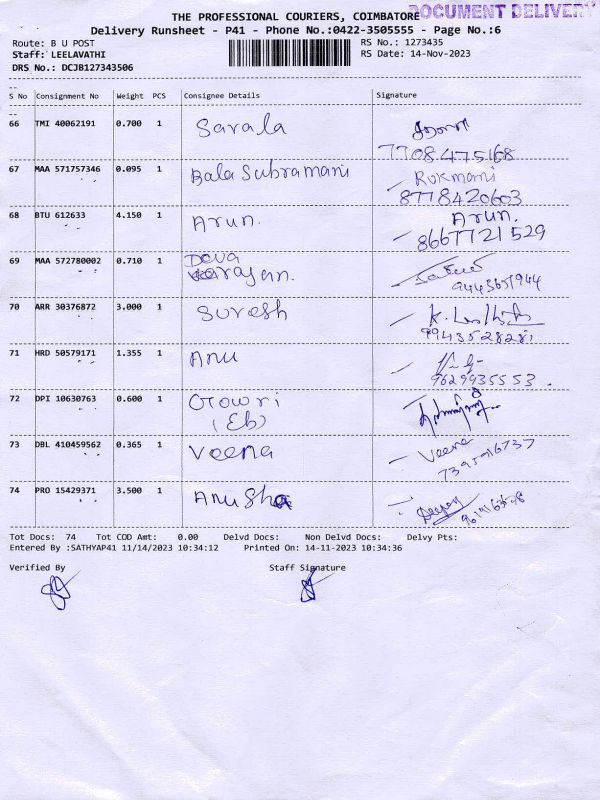 DOCUMENT DELIVERY
THE PROFESSIONAL COURIERS, COIMBATORE
Delivery Runsheet - P41 - Phone No.:0422-3505555 - Page No.:6
Route: B U POST RS No.: 1273435
Staff: LEELAVATHI RS Date: 14-Nov-2023
DRS No.: DCJB127343506
S No Consignment No Weight PCS Consignee Details Signature
66 TMI 40062191 0.700 1 Sarala
7708475168
67 MAA 571757346 0.095 1 Bala Subramani Rukmani
8778420603
68 BTU 612633 4.150 1 Arun. Arun.
8667721529
69 MAA 572780002 0.710 1 Deva
9443651944
70 ARR 30376872 3.000 1 Suresh
9943528281
71 HRD 50579171 1.355 1 Anu
9629935553.
72 DPI 10630763 0.600 1 Gowri
(Eb)
73 DBL 410459562 0.365 1 Veena Veena
74 PRO 15429371 3.500 1 Anusha Deepan
Tot Docs: 74 Tot COD Amt: 0.00 Delvd Docs: Non Delvd Docs: Delvy Pts:
Entered By :SATHYAP41 11/14/2023 10:34:12 Printed On: 14-11-2023 10:34:36
Verified By Staff Signature